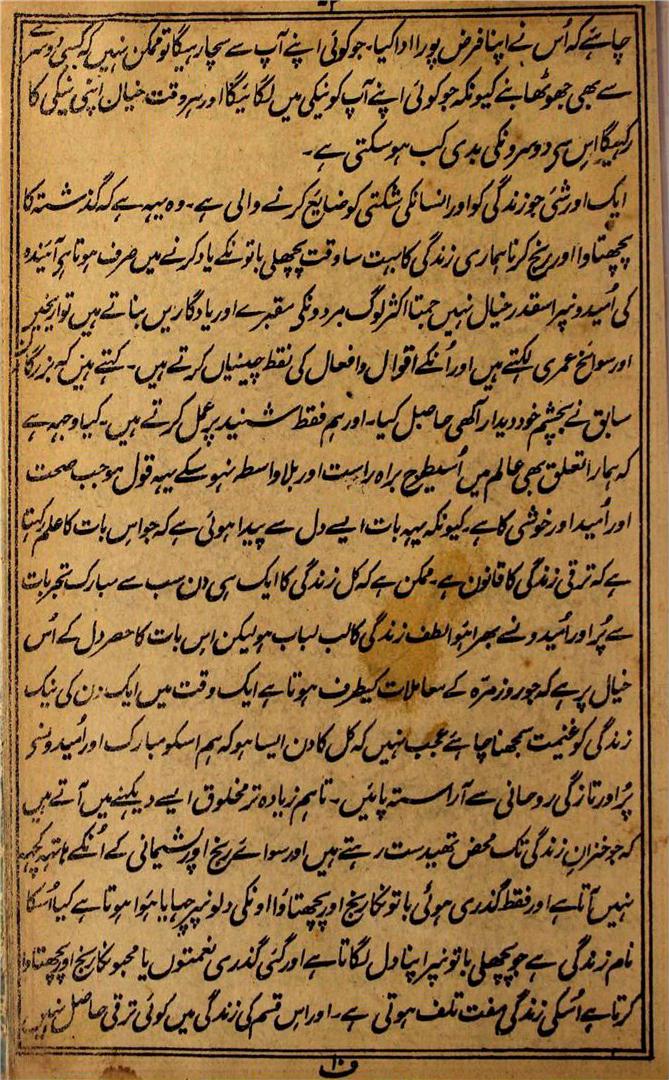 چاہئے کہ اُس نے اپنا فرض پورا ادا کیا۔ جو کوئی اپنے آپ سے سچا رہیگا تو ممکن نہیں کہ کسی دُوسرے
سے بھی جھوٹھا بنے کیونکہ جو کوئی اپنے آپ کو نیکی میں لگائیگا اور ہر وقت خیال اپنی نیکی کا
رکھیگا اس سی دوسرونکی بدی کب ہو سکتی ہے۔
ایک اور شئی جو زندگی کو اور انسانکی شکتی کو ضایع کرنے والی ہے۔ وہ یہہ ہے کہ گذشتہ کا
پچھتاوا اور رنج کرنا ہماری زندگی کا بہت سا وقت پچھلی باتونکے یاد کرنے میں صرف ہوتا ہی آئیندہ
کی اُمیدونپر اسقدر خیال نہیں جمتا اکثر لوگ مردونکی مقبرے اور یادگاریں بناتے ہیں تواریخیں
اور سوانح عمری لکھتے ہیں اور اُنکے اقوال و افعال کی نقط چینیاں کرتے ہیں۔ کہتے ہیں کہ بزرگان
سابق نے بچشم خود دیدار آلٰہی حاصل کیا۔ اور ہم فقط شنید پر عمل کرتے ہیں۔ کیا وجہہ ہے
کہ ہمارا تعلق بھی عالم میں اُسیطرح براہ راست اور بلا واسطہ نہو سکے یہہ قول موجب صحت
اور اُمید اور خوشی کا ہے۔ کیونکہ یہہ بات ایسے دل سے پیدا ہوئی ہے کہ جو اس بات کا علم رکھتا
ہے کہ ترقی زندگی کا قانون ہے۔ ممکن ہے کہ کل زندگی کا ایک ہی دن سب سے مبارک تجربات
سے پُر اور اُمیدونسے بھرا ہوا لطف زندگی کا لب لباب ہو لیکن اس بات کا حصر دل کے اُس
خیال پر ہے کہ جو روزمرّہ کے معاملات کیطرف ہوتا ہے ایک وقت میں ایک دن کی نیک
زندگی کو غنیمت سمجھنا چاہئے عجب نہیں کہ کل کا دن ایسا ہو کہ ہم اسکو مبارک اور اُمیدونسے
پُر اور تازگی روحانی سے آراستہ پائیں۔ تاہم زیادہ تر مخلوق ایسے دیکھنے میں آتے ہیں
کہ جو خزانِ زندگی تک محض تھیدست رہتے ہیں اور سوائے رنج اور پشیمانی کے اُنکے ہاتھ کچھہ
نہیں آتا ہے اور فقط گذری ہوئی باتونکا رنج اور پچھتاوا اونکی دلونپر چہایا ہوا ہوتا ہے کیا اُسکا
نام زندگی ہے جو پچھلی باتونپر اپنا دل لگاتا ہے اور گئی گذری نعمتوں یا محبونکا رنج اور پچھتاوا
کرتا ہے اُسکی زندگی مفت تلف ہوتی ہے۔ اور اس قسم کی زندگی میں کوئی ترقی حاصل نہیں